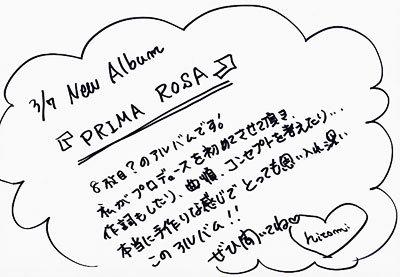 3/7 New Album
『PRIMA ROSA』
8枚目?のアルバムです!
私がプロデュースを初めてさせて頂き、
作詞もしたり、曲順、コンセプトを考えたり...
本当に手作りな感じでとっても思い入れ深い
このアルバム!!
ぜひ聞いてね♡
hitomi